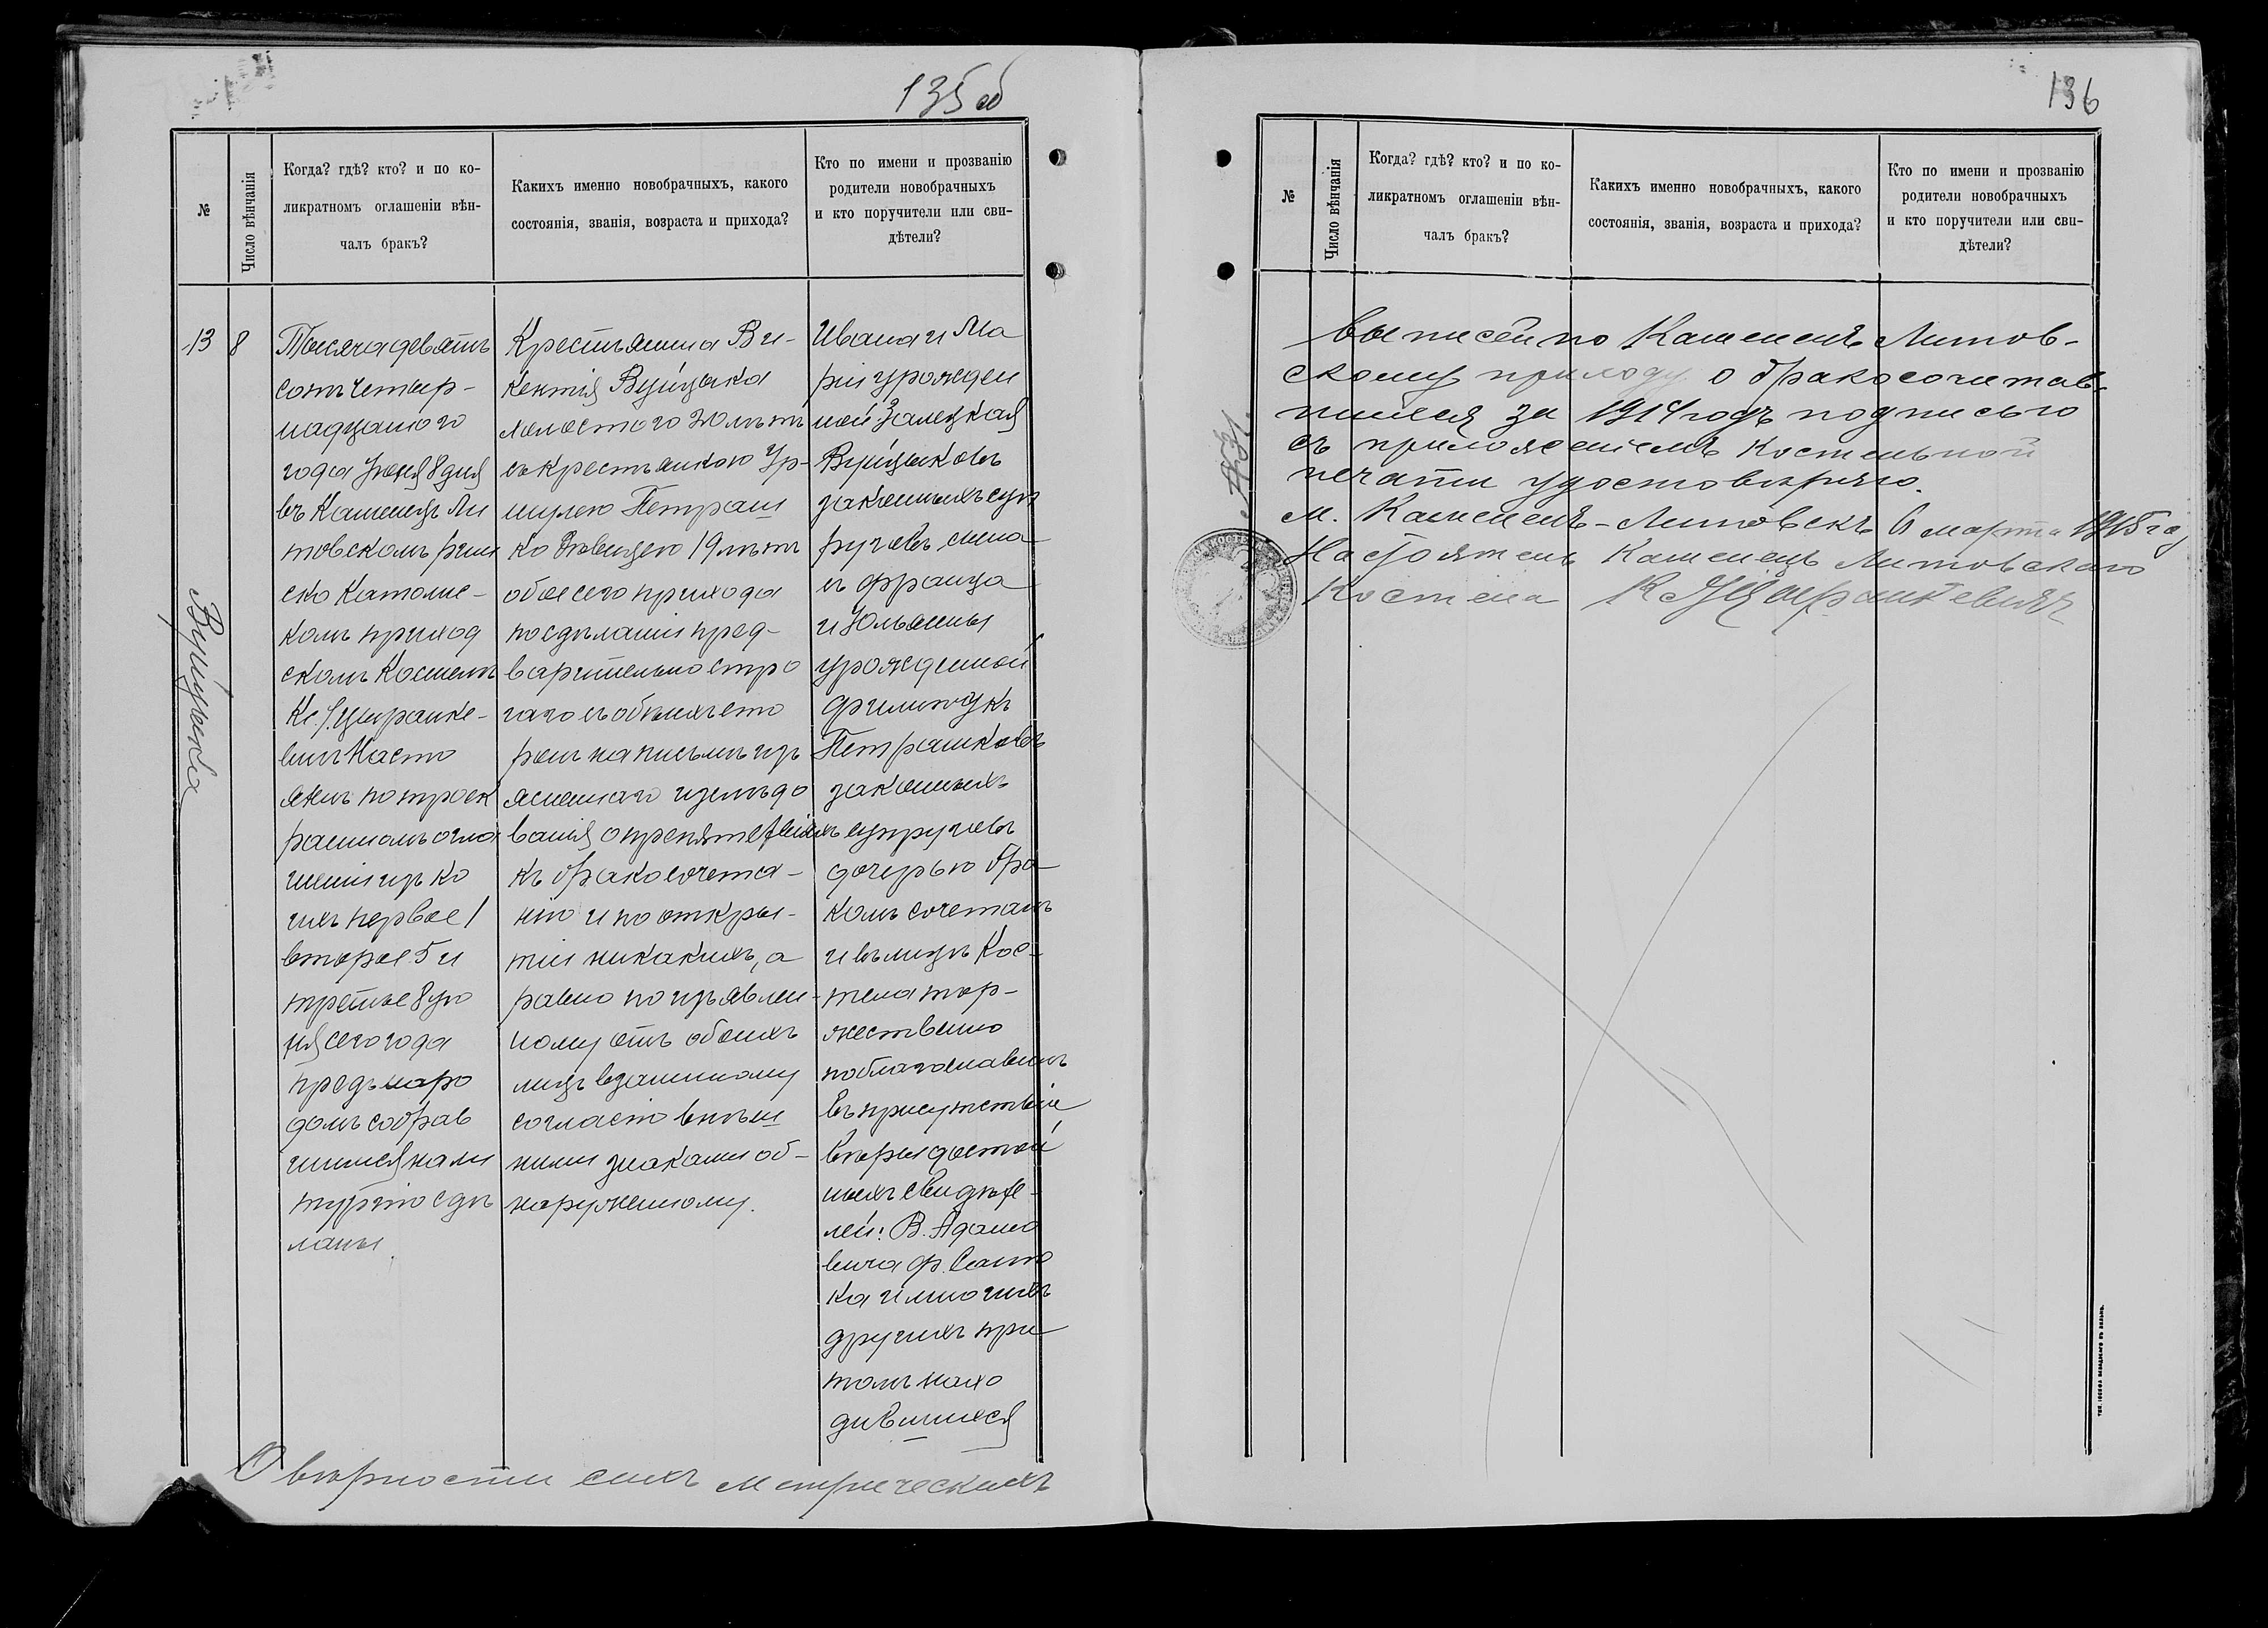 135 об
№
Число вѣнчанія
Когда? гдѣ? кто? и по ко-
ликратномъ оглашеніи вѣн-
чалъ бракъ?
Какихъ именно новобрачныхъ, какого
состоянія, званія, возраста и прихода?
Кто по имени и прозванію
родители новобрачныхъ
и кто поручители или сви-
дѣтели?
13
8
Вуйцика
Тысяча девять
сотъ четыр-
надцатого
года Іюня 8 дня
въ Каменецъ Ли
товскомъ рим
ско Католиче-
комъ приход
скомъ Костелѣ
Кс.
вичъ Насто
ятель по троек
ратномъ огла
шеніи изъ ко
ихъ первое 1
второе 5 и
третье 8 ію
ня сего года
предъ наро
домъ собрав
шимся на ли
тургію сдѣ
ланы.
Крестьянина Ви-
кентія Вуйцика
холостого 20 лѣтъ
съ крестьянкою Ур-
шулею Петраш
ко дѣвицею 19 лѣтъ
обое сего прихода
по сдѣланіи пред-
варительно стро
гаго съ обѣихъ сто
ронъ на письмѣ изъ
ясненнаго изслѣдо
ванія о препятствіяхъ
къ бракосочета-
нію и по откры-
тіи никакихъ, а
равно по изъявлен-
ному отъ обоихъ
лицъ взаимному
согласію внѣш
ними знаками об-
наруженному.
Ивана и Ма
ріи урожден
ной Залецкая
Вуйциковъ
законныхъ суп
руговъ сына
съ Франца
и Юльянны
урожденной
Филипукъ
Петрашковъ
законныхъ
супруговъ
дочерью бра
комъ сочеталъ
и въ лицѣ Кос-
тела тор-
жественно
поблагословилъ
въ присутствіи
вѣры достой
ныхъ свидѣте-
лей: В. Адамо
вича Ф.
ка и многихъ
другихъ при
томъ нахо
дившихся
О вѣрности сихъ метрическихъ
136
№
Число вѣнчанія
Когда? гдѣ? кто? и по ко-
ликратномъ оглашеніи вѣн-
чалъ бракъ?
Какихъ именно новобрачныхъ, какого
состоянія, званія, возраста и прихода?
Кто по имени и прозванію
родители новобрачныхъ
и кто поручители или сви-
дѣтели?
выписей по Каменецъ Литов-
скому приходу о бракосочетав-
шихся за 1914 годъ подписью
съ приложеніемъ костельной
печати удостовѣряю.
м. Каменецъ-Литовскъ 6 марта 1915 год
Настоятель Каменецъ Литовскаго
Костела
№ 31.